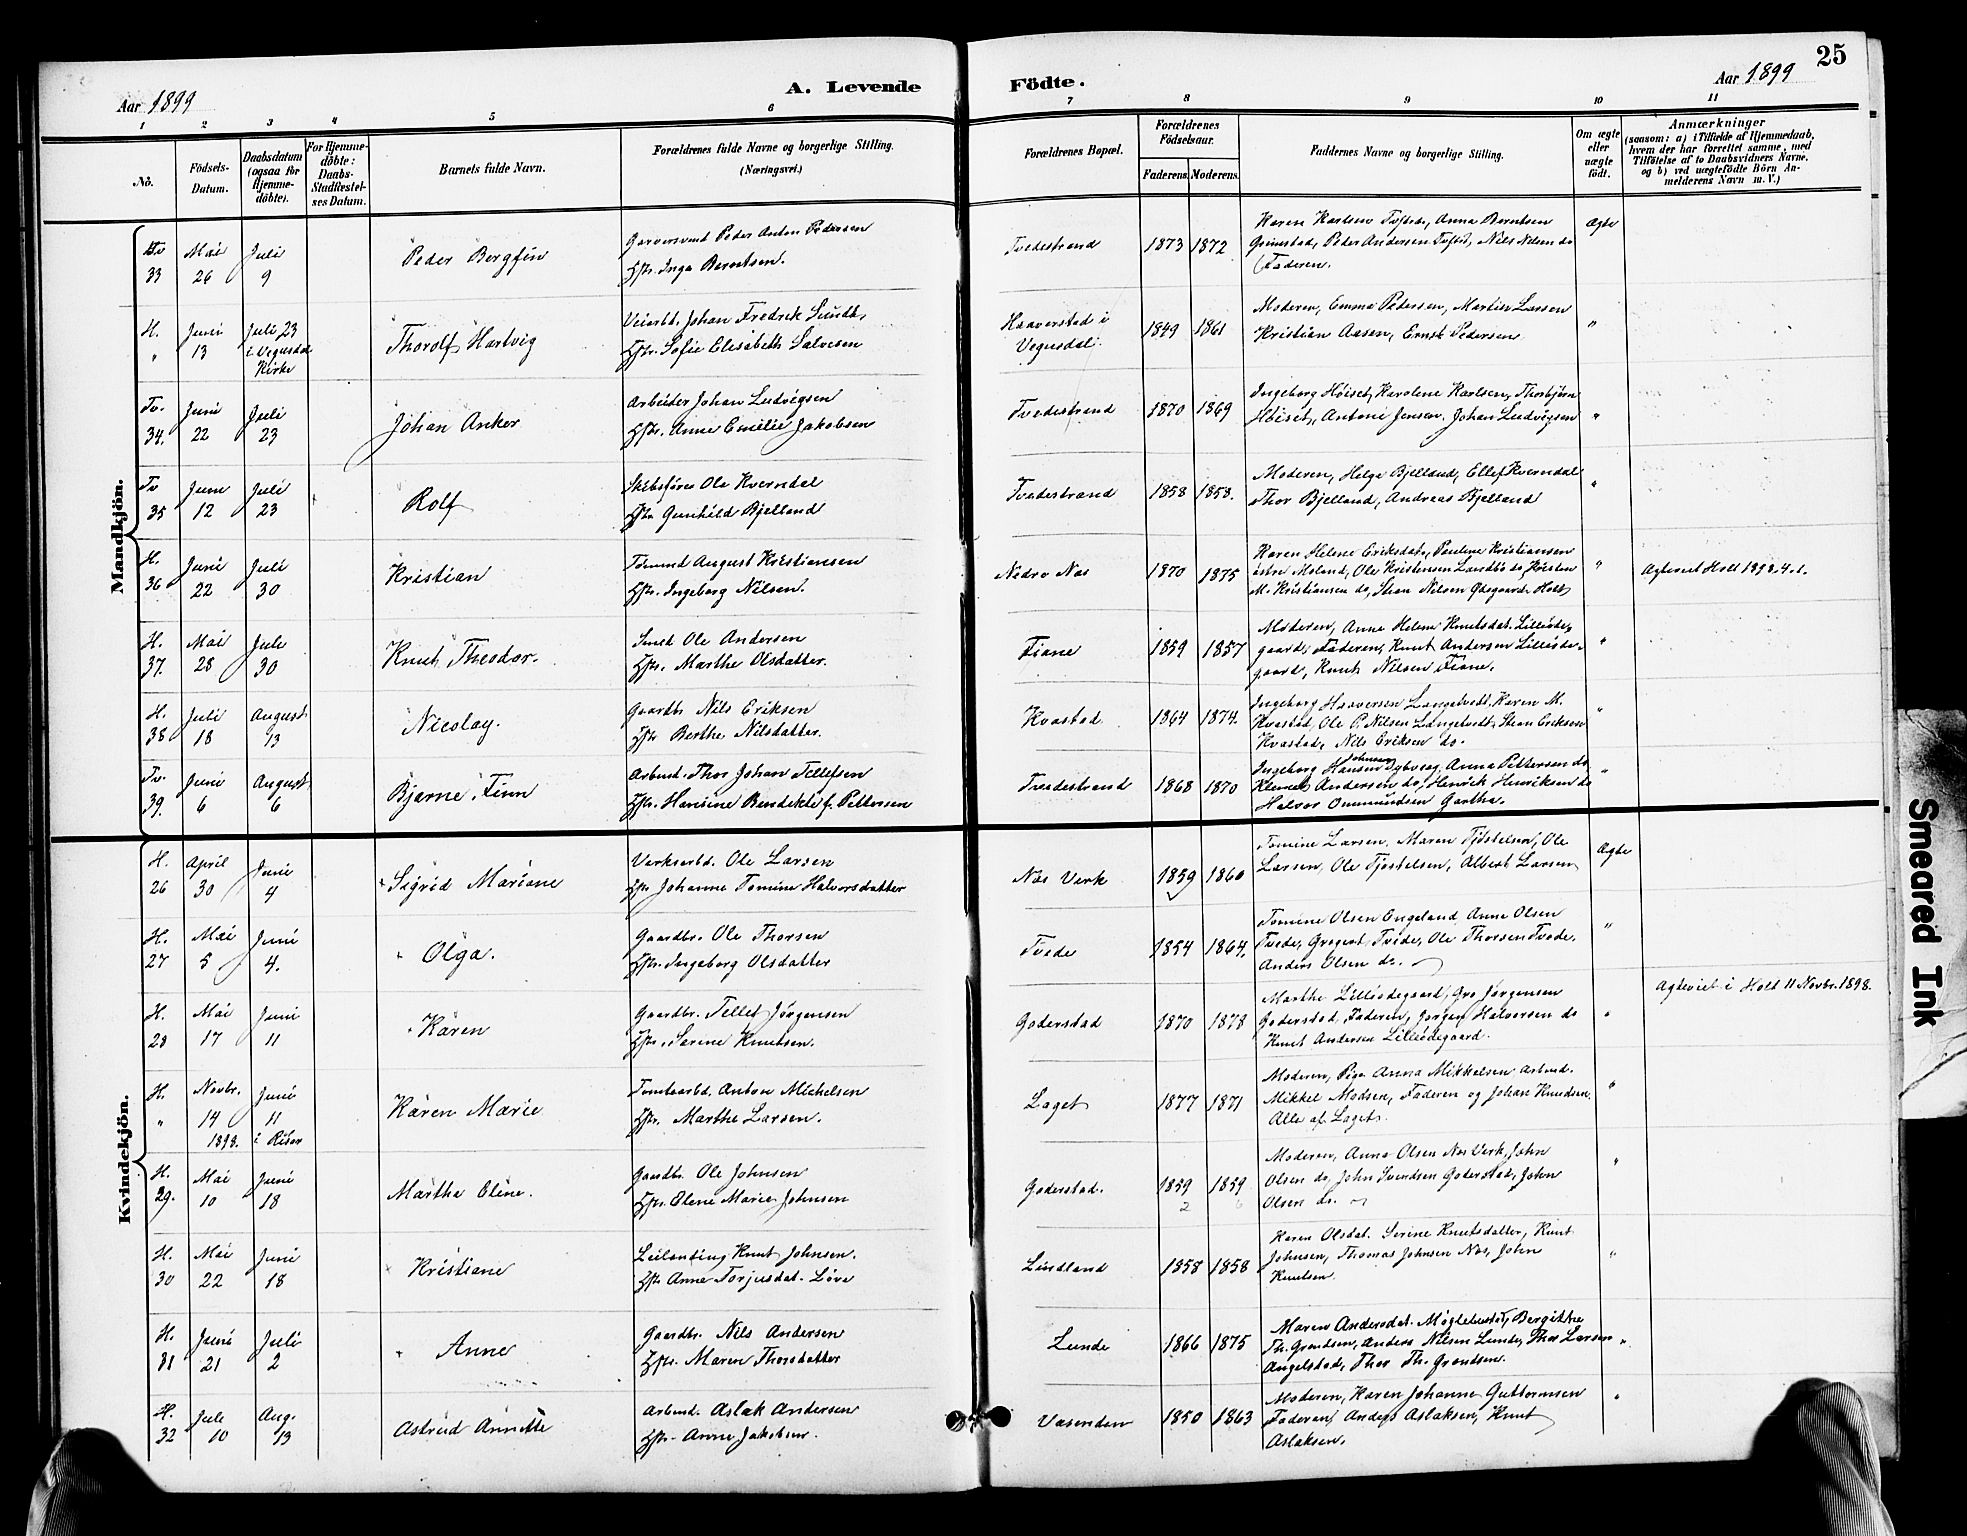 25
Aar 1899
A. Levende
Födte.
Aar 1899
1 2 3 4 5 6 7 8 9 10 11
No.
Födsels-Datum.
Daabsdatum (ogsaa for Hjemme-döbte).
For Hjemme-döbte: Daabs-Stadfæstel-ses Datum.
Barnets fulde Navn.
Forældrenes fulde Navne og borgerlige Stilling. (Næringsvei.)
Forældrenes Bopæl.
Forældrenes Födselsaar.
Faderens. Moderens.
Faddernes Navne og borgerlige Stilling.
Om ægte eller uægte födt.
Anmærkninger
(saasom: a) i Tilfælde af Hjemmedaab, hvem der har forrettet samme, med Tilföielse af to Daabsvidners Navne, og b) ved uægtefödte Börn An-melderens Navn m. V.)
Mandkjön.
Tv 33 Mai 26 Juli 9 Peder Bergfin
Garversvend Peder Anton Pedersen
Hstr. Inga Berntsen.
Tvedestrand 1873 1872
Karen Karlsen Tvestr., Anna Berntsen
Grimstad, Peder Andersen Tvestr, Nils Nilsen do
Faderen.
Ægte
H. " Juni 13 Juli 23 i Vegusdal Kirke Thorolf Hartvig
Veiarbd. Johan Fredrik Lundt,
Hstr. Sofie Elisabeth Salvesen
Haaverstad i Vegusdal. 1849 1861
Moderen, Emma Pedersen, Martin Larsen
Kristian Aasen, Ernst Pedersen
"
Tv. 34. Juni 22 Juli 23 Johan Anker
Arbeider Johan Ludvigsen
Hstr. Anne Emilie Jakobsen
Tvedestrand 1870 1869
Ingeborg Höiset, Karoline Karlsen, Thorbjörn
Höiset, Antoni Jensen, Johan Ludvigsen
"
Tv 35 Juni 12 Juli 23 Rolf
Skibsförer Ole Kverndal
Hstr Gunhild Bjelland
Tvedestrand 1858 1858.
Moderen, Helga Bjelland, Ellef Kverndal
Thor Bjelland, Andreas Bjelland
"
H. 36 Juni 22 Juli 30 Kristian
Tömmd August Kristiansen
Hstr. Ingeborg Nilsen.
Nedre Nes 1870 1875
Karen Helene Eriksdat., Pauline Kristiansen
östre Moland, Ole Kristensen Landbö do, Kristen
M. Kristiansen do, Stian Nilsen Ødegaard Holt
"
Ægteviet Holt 1898.4.1.
H. 37. Mai 28 Juli 30 Knut Theodor.
Smed Ole Andersen
Hstr. Marthe Olsdatter.
Fiane 1859 1857
Moderen, Anne Helene Knutsdat. Lilleöde-
gaard, Faderen, Knut Andersen Lilleöde-
gaard, Knut Nilsen Fiane.
"
H. 38 Juli 18 August 13 Nicolay.
Gaardbr. Nils Eriksen
Hstr Berthe Nilsdatter.
Kvastad 1864 1874.
Ingeborg Haaversen Langetvedt, Karen M.
Kvastad, Ole P. Nilsen Langetvedt, Stian Eriksen
Kvastad, Nils Eriksen do.
"
Tv. 39. Juni 6 August 6 Bjarne Finn
Arbmd. Thor Johan Tellefsen
Hstr. Hansine Bendikte f. Pettersen
Tvedestrand 1868 1870
Ingeborg Hansen Johnsen Dybvaag, Anna Pettersen do
Klemet Andersen do, Henrik Henriksen do
Halvor Ommundsen Gartha.
"
Kvindekjön.
H. 26 April 30 Juni 4 Sigrid Mariane
Verksarbd. Ole Larsen
Hstr Johanne Tomine Halvorsdatter
Nes Verk 1859 1860
Tomine Larsen, Maren Tjöstelsen, Ole
Larsen, Ole Tjöstelsen, Albert Larsen
Ægte
H. 27 Mai 5 Juni 4. Olga.
Gaardbr. Ole Thorsen
Hstr. Ingeborg Olsdatter
Tvede 1854 1864.
Tomine Olsen Engeland Anna Olsen
Tvede, Tvede, Ole Thorsen Tvede.
Anders Olsen do.
"
H. 28 Mai 17 Juni 11 Karen
Gaardbr. Tellef Jörgensen
Hstr. Serine Knutsen.
Goderstad 1870 1878
Marthe Lilleödegaard, Gro Jörgensen
Goderstad, Faderen, Jörgen Halversen do
Knut Andersen Lilleödegaard.
"
Ægteviet i Holt 11 Novbr. 1898.
H. " Novbr. 14 1898. Juni 11 i Risör Karen Marie
Tomtearbd. Anton Michelsen
Hstr. Marthe Larsen.
Laget 1877 1871
Moderen, Pige Anna Mikkelsen arbmd.
Mikkel Madsen, Faderen og Johan Knudsen.
Alle af Laget.
"
H. 29. Mai 10 Juni 18 Martha Oline.
Gaardbr. Ole Johnsen
Hstr. Elene Marie Johnsen
Goderstad. 1859 1859
2 6
Moderen, Anna Olsen Nes Verk, John
Olsen do, John Svendsen Goderstad, John
Olsen do.
"
H. 30 Mai 22 Juni 18 Kristiane
Leilending Knut Johnsen.
Hstr Anne Torjusdat. Löve
Lindland 1858 1858
Karen Olsdat. Serine Knutsdatter, Knut
Johnsen, Thomas Johnsen Nes, John
Knutsen.
"
H. 31 Juni 21 Juli 2 Anne
Gaardbr. Nils Andersen
Hstr. Maren Thorsdatter
Lunde 1866 1875
Maren Andersdat. Möglebustad, Bergithe
Th. Gröndsen, Anders Nilsen Lunde, Thor Larsen
Angelstad, Thor Th. Gröndsen.
"
H. 32 Juli 10 Aug. 13 Astrid Annette
Arbmd. Aslak Andersen
Hstr. Anne Jakobsen.
Vasenden 1850 1863
Moderen, Karen Johanne Guttormsen
Faderen, Anders Aslaksen, Knut
Aslaksen.
"
Smeared Ink